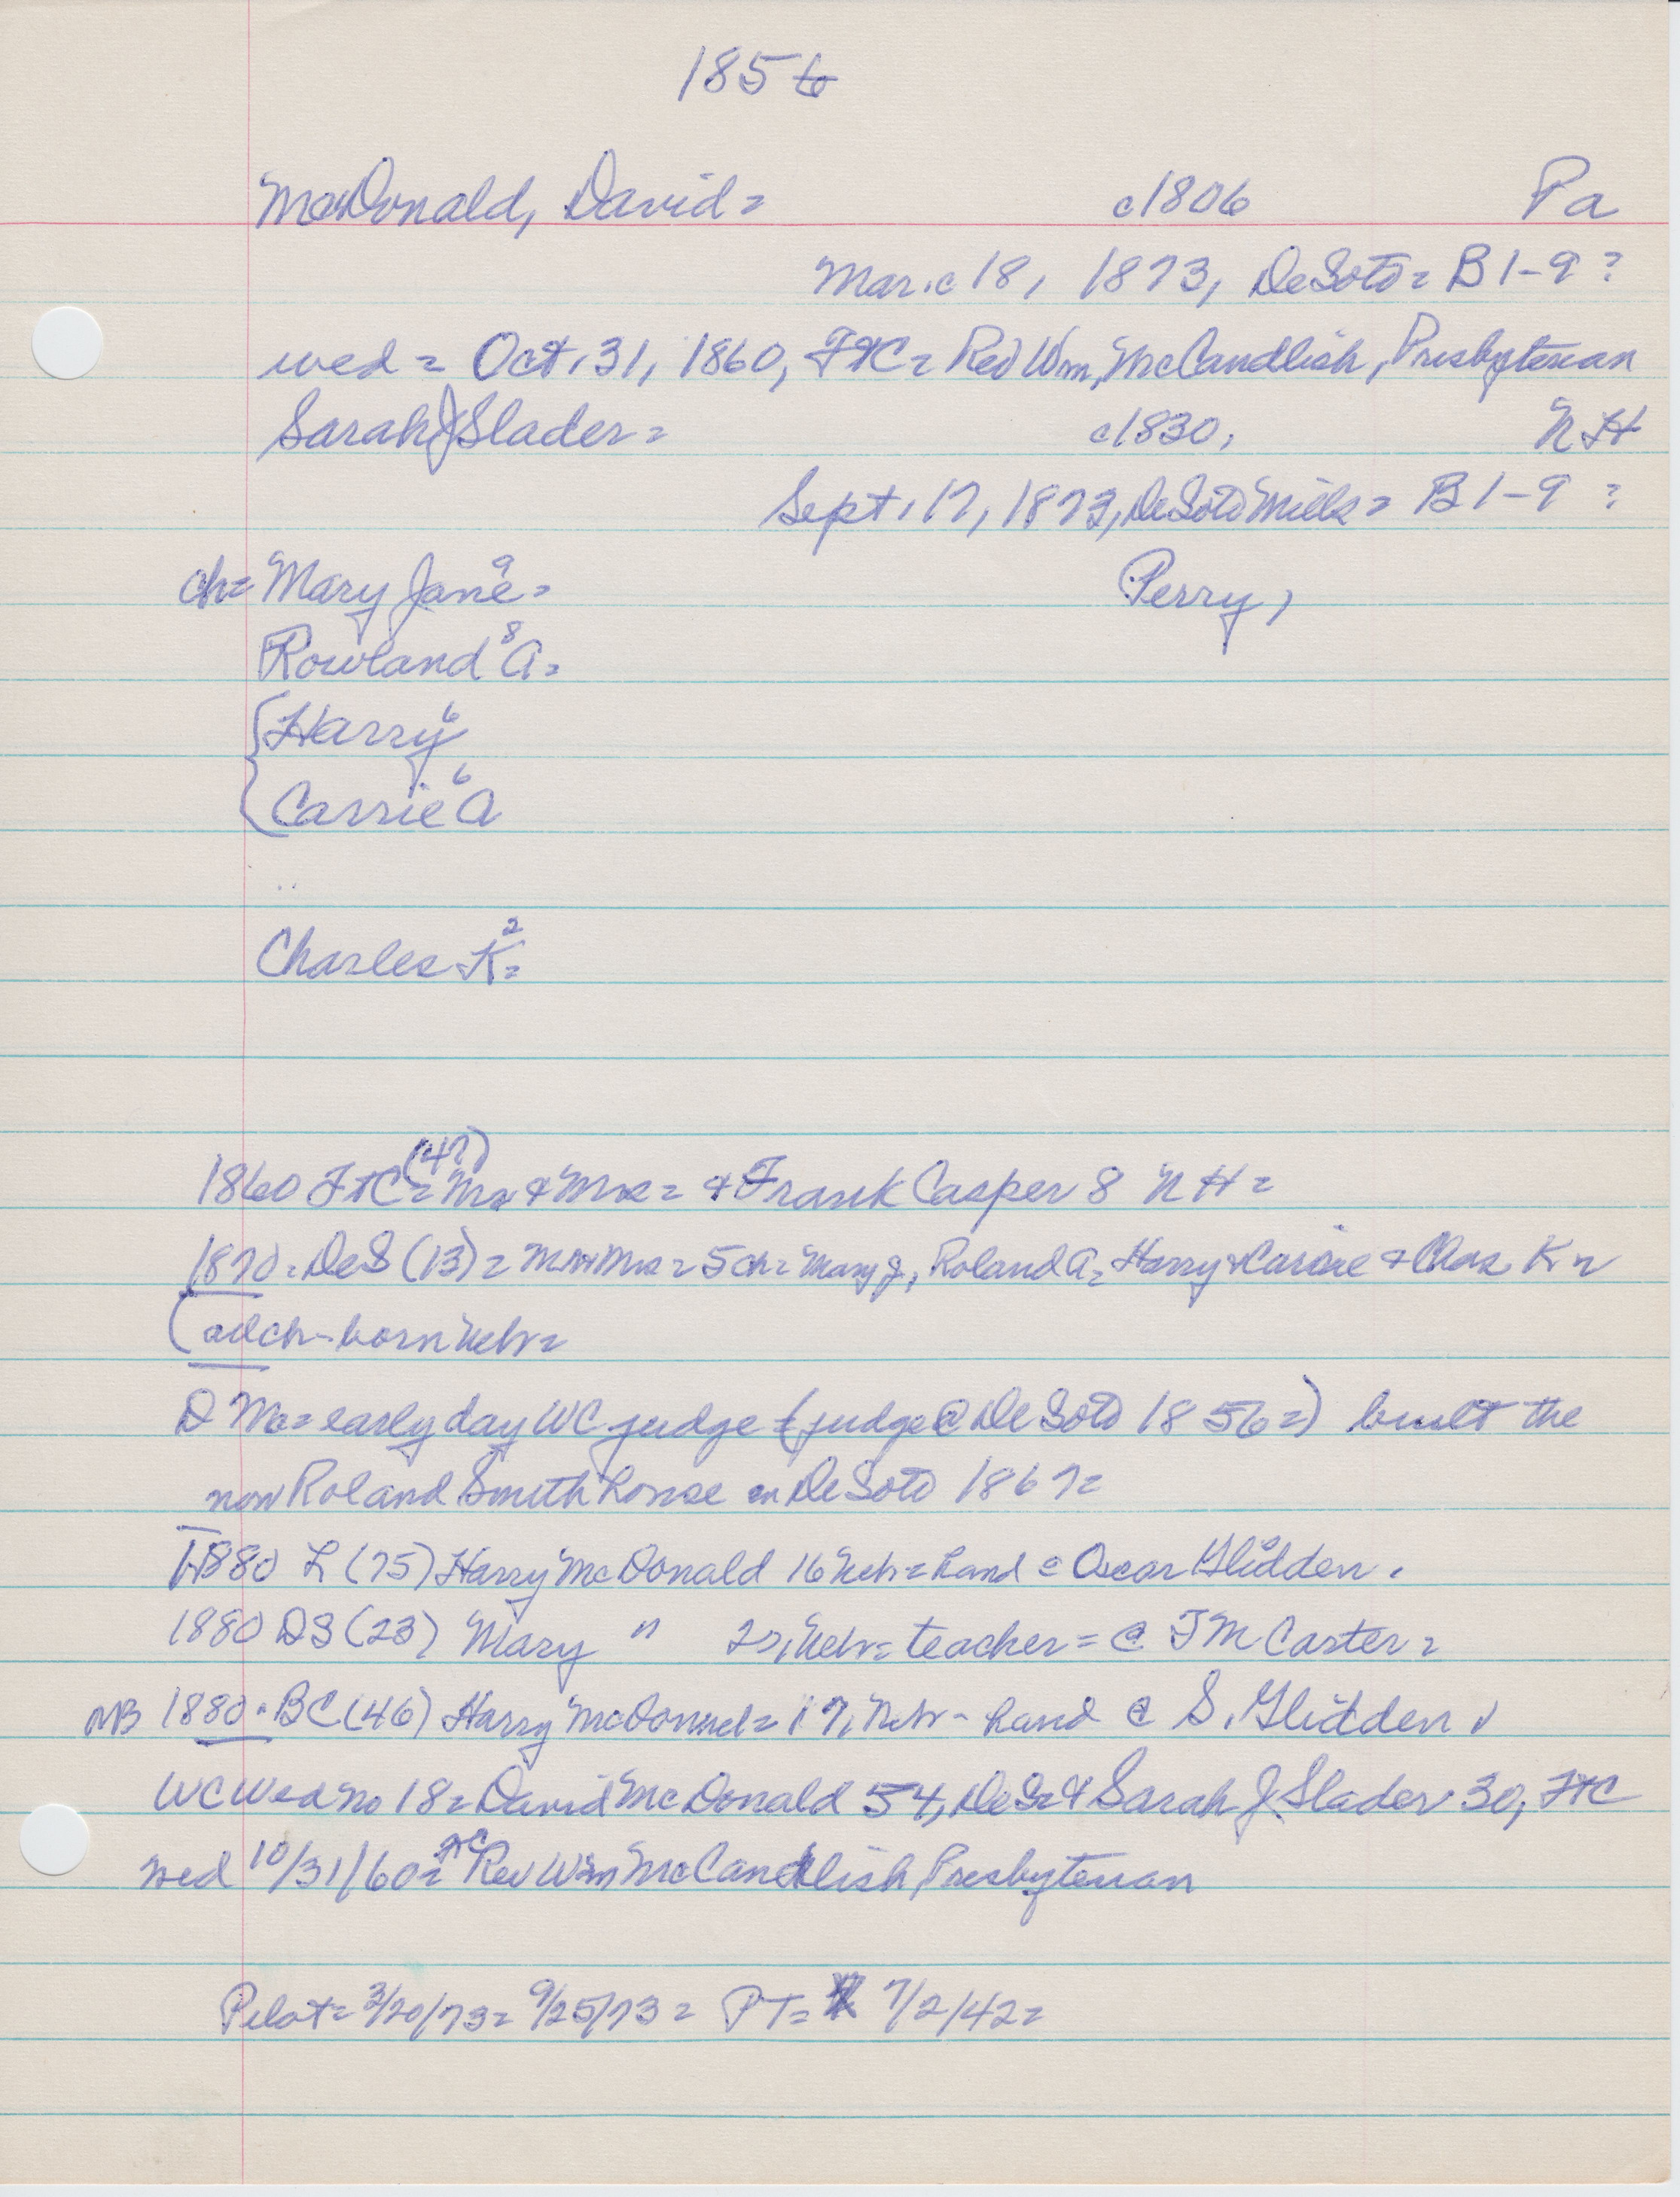 1856
McDonald, David = c1806 Pa
Mar. c18, 1873, DeSoto = B 1-9 ?
wed = Oct. 31, 1860, FtC = Rev Wm. McCandlish, Presbyterian
Sarah J Slader = c1830, NH
Sept. 17, 1873, DeSoto Mills = B 1-9 ?
ch = Mary Jane 9 = Perry,
Rowland 8 A =
{ Harry 6
{ Carrie 6 A
Charles K 2 =
1860 FtC (47) = Mr & Mrs = & Frank Casper 8 NH =
1870 = DeS (13) = Mr & Mrs = 5 ch = Mary J, Roland A = Harry & Carrie & Chas K =
(all ch - born Nebr =
D Mc = early day WC judge (judge @ DeSoto 1856 =) built the
now Roland Smith house in DeSoto 1867 =
1880 L (75) Harry McDonald 16 Nebr = hand @ Oscar Glidden.
1880 DS (23) Mary " Nebr = teacher = @ J M Carter =
NB 1880 = BC (46) Harry McDonnel = 17, Nebr - hand @ S. Glidden
WC Wed no 18 = David McDonald 54, DeS = & Sarah J Slader 30, FtC
wed 10/31/60 = FtC Rev Wm McCandlish Presbyterian
Pilot = 3/20/73 = 9/25/73 = PT = 7/2/42 =